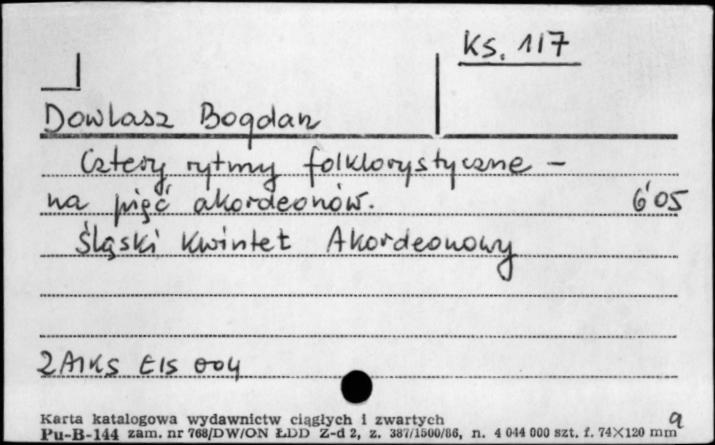 Ks. 117
Dowlasz Bogdan
Cztery rytmy folklorystyczne –
na pięć akordeonów. 6'05
Śląski Kwintet Akordeonowy
2AIKS EIS 004
Karta katalogowa wydawnictw ciągłych i zwartych
Pu-B-144 zam. nr 768/DW/ON ŁDD Z-d 2, z. 387/1500/86, n. 4 044 000 szt. f. 74×120 mm